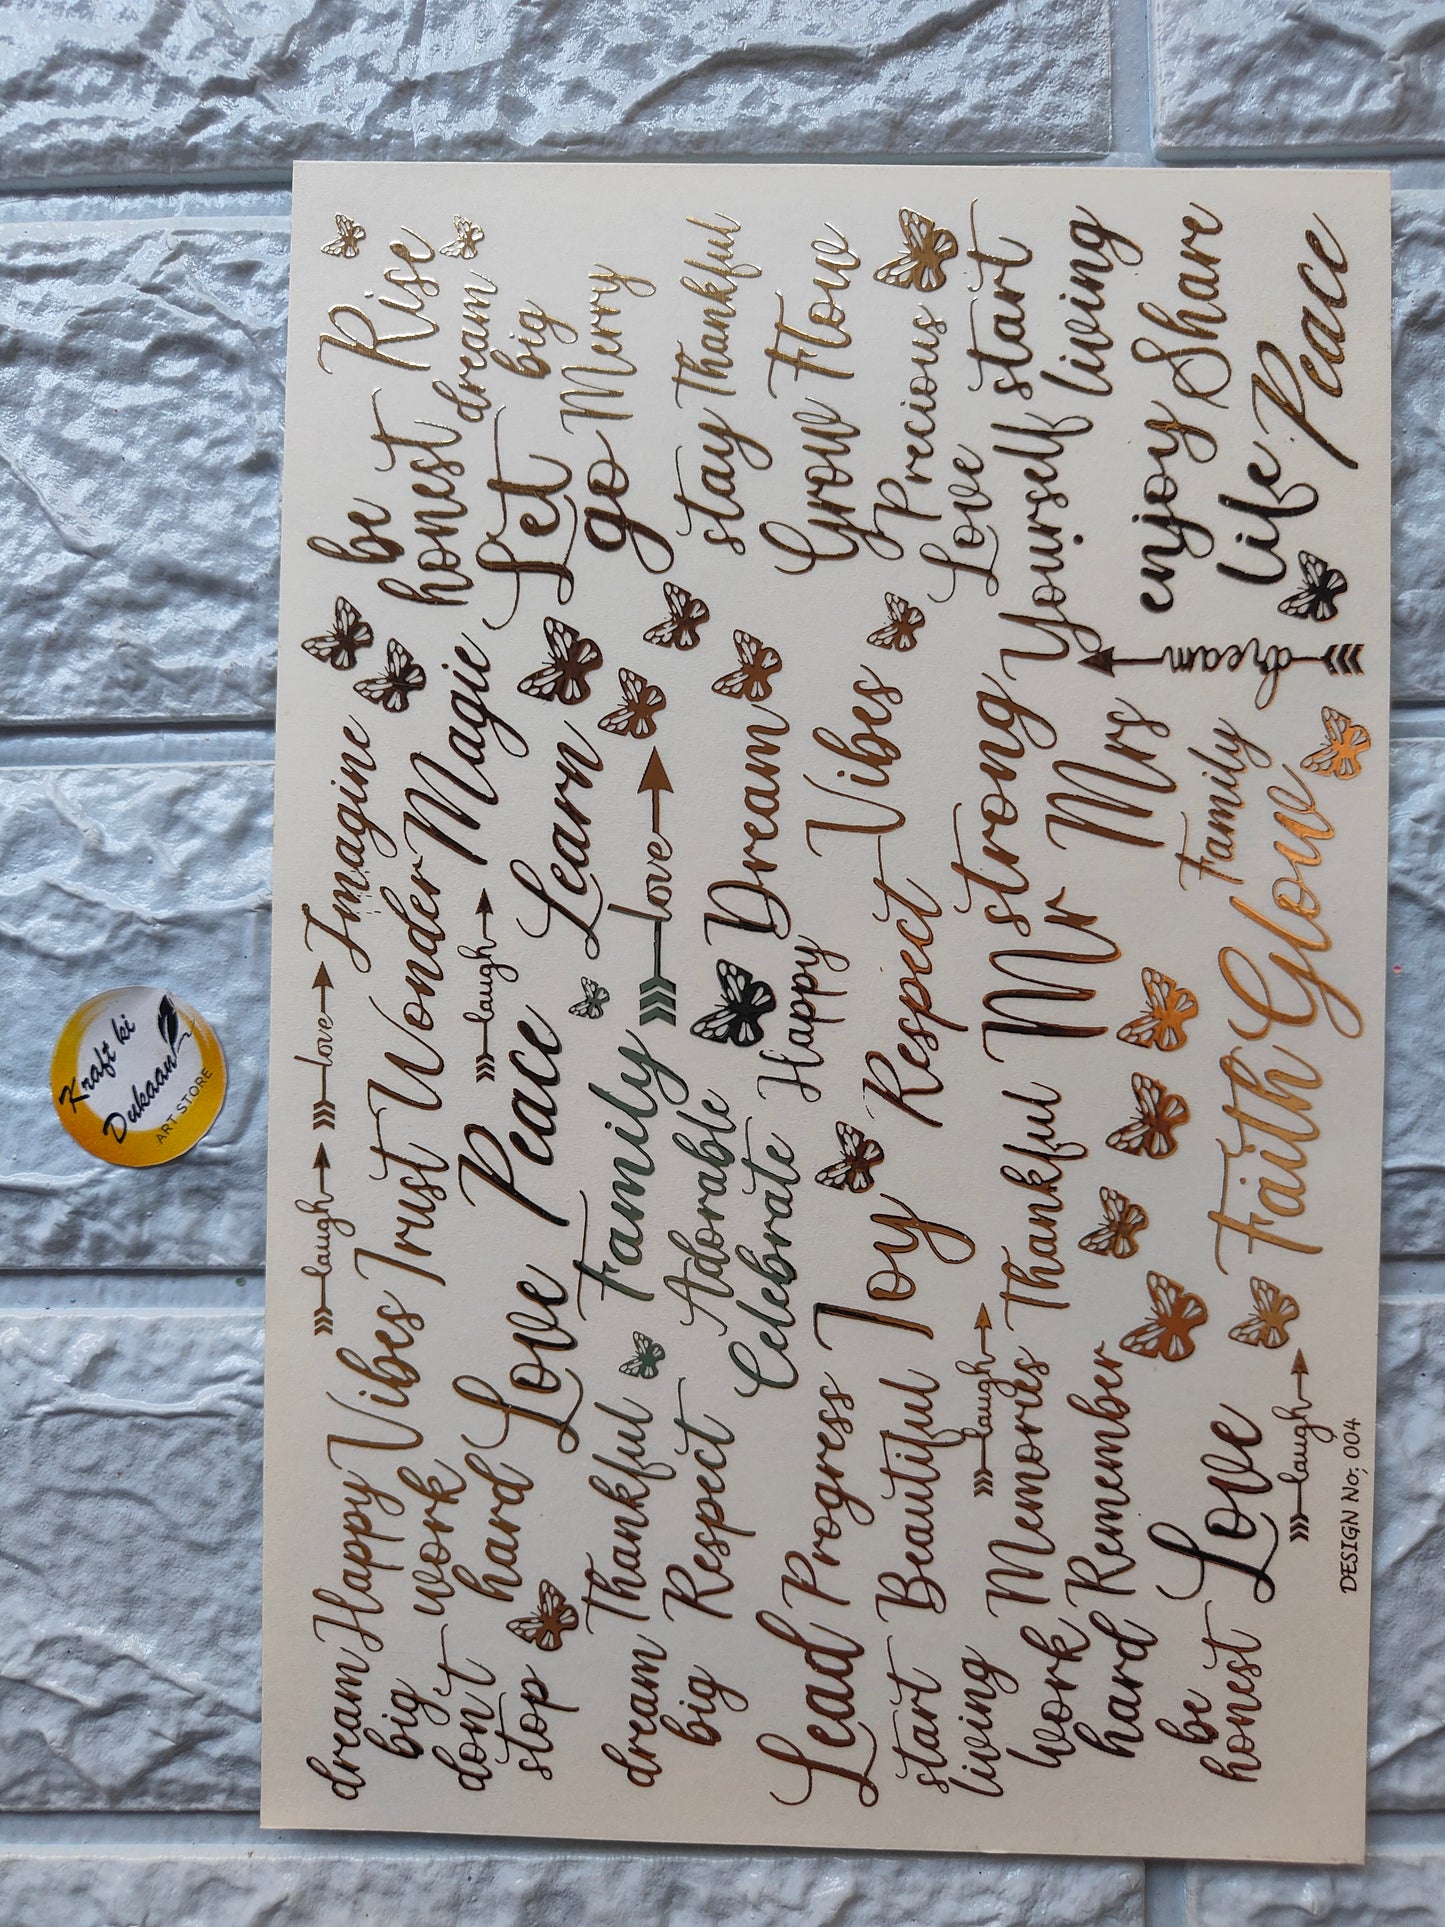 Kraft ki
Dukaan
ART STORE
laugh
love
Imagine
be
honest
Rise
dream
big
dream
big
Happy
Vibes
Trust
Wonder
Magic
work
hard
don't
stop
laugh
Love
Peace
Learn
Let
go
Merry
Thankful
Family
love
stay
Thankful
dream
big
Respect
Adorable
Celebrate
Happy
Dream
Grow
Flow
Lead
Progress
Joy
Respect
Vibes
Precious
start
living
Beautiful
laugh
Thankful
strong
Love
Yourself
start
living
work
hard
Memories
Remember
Mr
Mrs
dream
enjoy
life
Share
be
honest
Love
laugh
Faith
Glow
Family
Peace
DESIGN No; 004